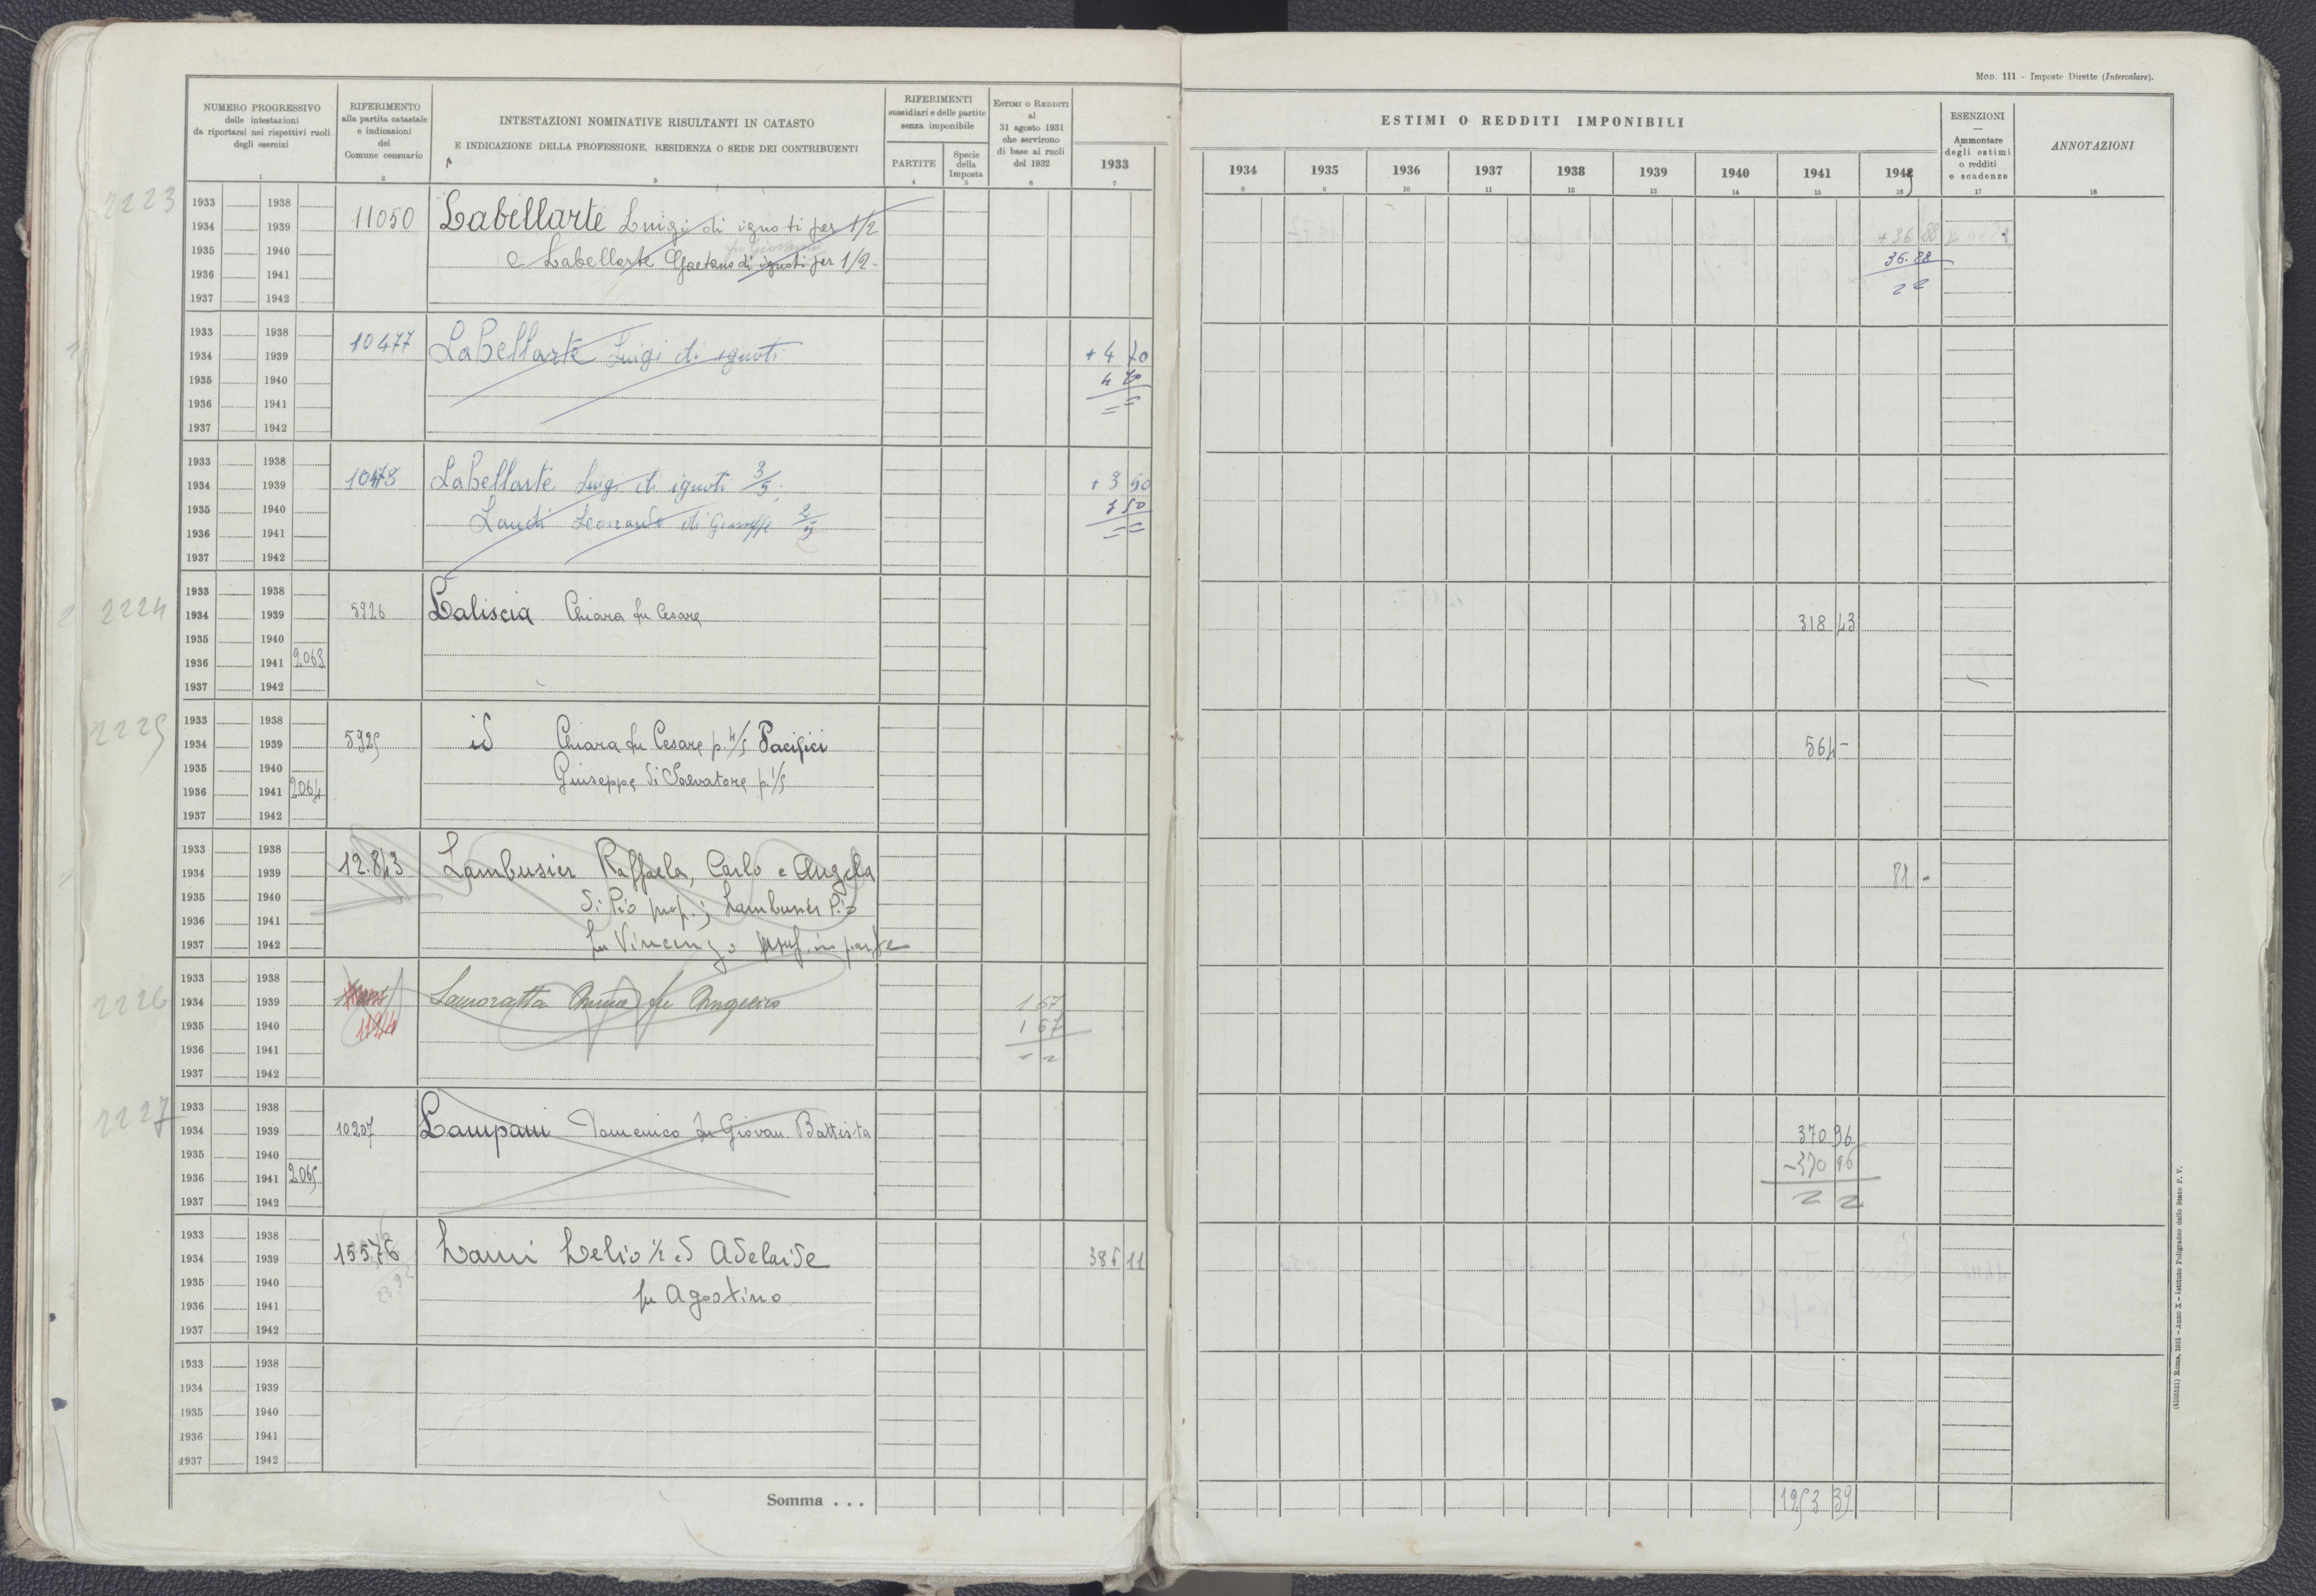 MOD. 111 – Imposte Dirette (Intercalare).
NUMERO PROGRESSIVO
delle intestazioni
da riportarsi nei rispettivi ruoli
degli esercizi
1
RIFERIMENTO
alla partita catastale
e indicazioni
del
Comune censuario
2
INTESTAZIONI NOMINATIVE RISULTANTI IN CATASTO
E INDICAZIONE DELLA PROFESSIONE, RESIDENZA O SEDE DEI CONTRIBUENTI
3
RIFERIMENTI
sussidiari e delle partite
senza imponibile
PARTITE
4
Specie
della
Imposta
5
ESTIMI O REDDITI
al
31 agosto 1931
che servirono
di base ai ruoli
del 1932
6
1933
7
ESTIMI O REDDITI IMPONIBILI
1934 1935 1936 1937 1938 1939 1940 1941 1942
8 9 10 11 12 13 14 15 16
ESENZIONI
—
Ammontare
degli estimi
o redditi
e scadenze
17
ANNOTAZIONI
18
2223
1933 1938
1934 1939 11050 Labellarte Luigi di ignoti per 1/2 +36 88
fu Giovanni
1935 1940 e Labellarte Gaetano di ignoti per 1/2 - 36.88
1936 1941
1937 1942
1933 1938
1934 1939 10477 LaBellarte Luigi di ignoti +4 70
1935 1940 4 70
1936 1941 = =
1937 1942
1933 1938
1934 1939 10478 LaBellarte Luigi di ignoti 3/5; +3 50
1935 1940 Landi Leonardo di Giuseppe 2/5 3 50
1936 1941 = =
1937 1942
1933 1938
2224 1934 1939 5926 Laliscia Chiara fu Cesare 318 43
1935 1940
1936 1941 2063
1937 1942
2225 1933 1938
1934 1939 5925 id Chiara fu Cesare p. 4/5 Pacifici 564 -
1935 1940 Giuseppe di Salvatore p. 1/5
1936 1941 2064
1937 1942
1933 1938
1934 1939 12.843 Lambusier Raffaela, Carlo e Angela 81 -
1935 1940 di Pio prop.; Lambusier Pio
1936 1941
1937 1942 fu Vincenzo usuf. in parte
1933 1938
2226 1934 1939 fu Angelico 1 67
1935 1940 1 67
1936 1941 = =
1937 1942
2227 1933 1938
1934 1939 10207 Lampani Domenico fu Giovan. Battista 370 96
1935 1940 -370 96
1936 1941 2065
1937 1942
1933 1938
1934 1939 15576 Lami Lelio 1/2 ed Adelaide 386 11
1935 1940
1936 1941 fu Agostino
1937 1942
1933 1938
1934 1939
1935 1940
1936 1941
1937 1942
Somma . . . 1253 39
Roma, 1931 – Anno X – Istituto Poligrafico dello Stato P. V.